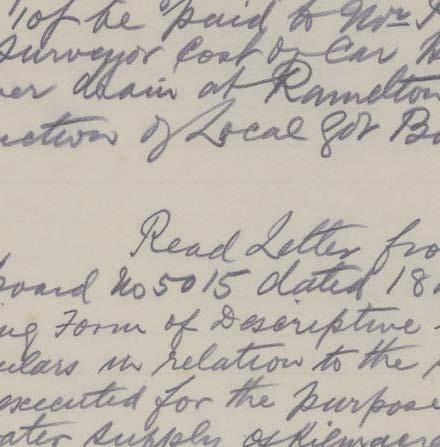 /of be paid to Mr
Surveyor Cost of Car
er drain at Ramelton
uction of Local Gov Bo
Read Letter fro
oard No 5015 dated 18
ing Form of Descriptive
ulars in relation to the
executed for the purpose
ater supply of Kilmacr